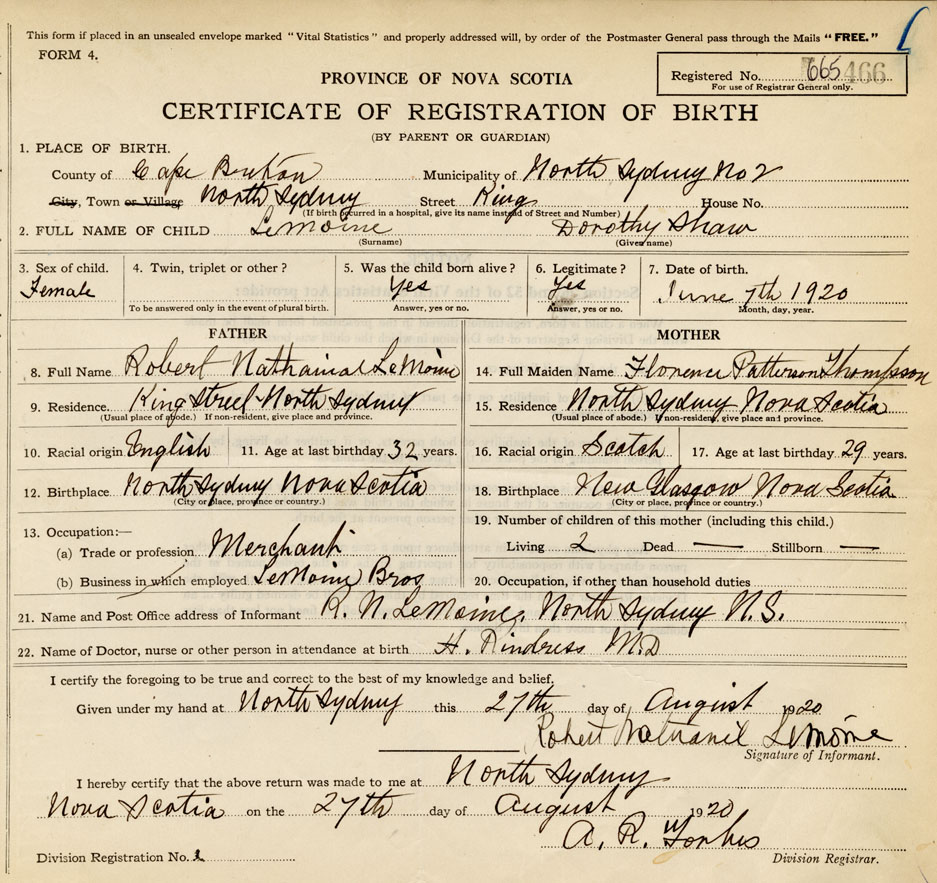 This form if placed in an unsealed envelope marked "Vital Statistics" and properly addressed will, by order of the Postmaster General pass through the Mails "FREE."
FORM 4.
PROVINCE OF NOVA SCOTIA
Registered No. 665 466
For use of Registrar General only.
CERTIFICATE OF REGISTRATION OF BIRTH
(BY PARENT OR GUARDIAN)
1. PLACE OF BIRTH.
County of Cape Breton Municipality of North Sydney No 2
City, Town or Village North Sydney Street King House No.
(If birth occurred in a hospital, give its name instead of Street and Number)
2. FULL NAME OF CHILD LeMoine Dorothy Shaw
(Surname) (Given name)
3. Sex of child. 4. Twin, triplet or other? 5. Was the child born alive? 6. Legitimate? 7. Date of birth.
Female Yes Yes June 7th 1920
To be answered only in the event of plural birth. Answer, yes or no. Answer, yes or no. Month, day, year.
FATHER MOTHER
8. Full Name Robert Nathainal LeMoine 14. Full Maiden Name Florence Patterson Thompsson
9. Residence. King Street North Sydney 15. Residence North Sydney Nova Scotia
(Usual place of abode.) If non-resident, give place and province. (Usual place of abode.) If non-resident, give place and province.
10. Racial origin English 11. Age at last birthday 32 years. 16. Racial origin Scotch 17. Age at last birthday 29 years.
12. Birthplace North Sydney Nova Scotia 18. Birthplace New Glasgow Nova Scotia
(City or place, province or country.) (City or place, province or country.)
13. Occupation:— 19. Number of children of this mother (including this child.)
(a) Trade or profession Merchant Living 2 Dead — Stillborn —
(b) Business in which employed LeMoine Bros 20. Occupation, if other than household duties
21. Name and Post Office address of Informant R. N. LeMoine, North Sydney N.S.
22. Name of Doctor, nurse or other person in attendance at birth H. Rindress M.D
I certify the foregoing to be true and correct to the best of my knowledge and belief.
Given under my hand at North Sydney this 27th day of August 1920
Robert Nathaniel LeMoine
Signature of Informant.
I hereby certify that the above return was made to me at North Sydney
Nova Scotia on the 27th day of August 1920
A. R. Forbes
Division Registration No. 2 Division Registrar.